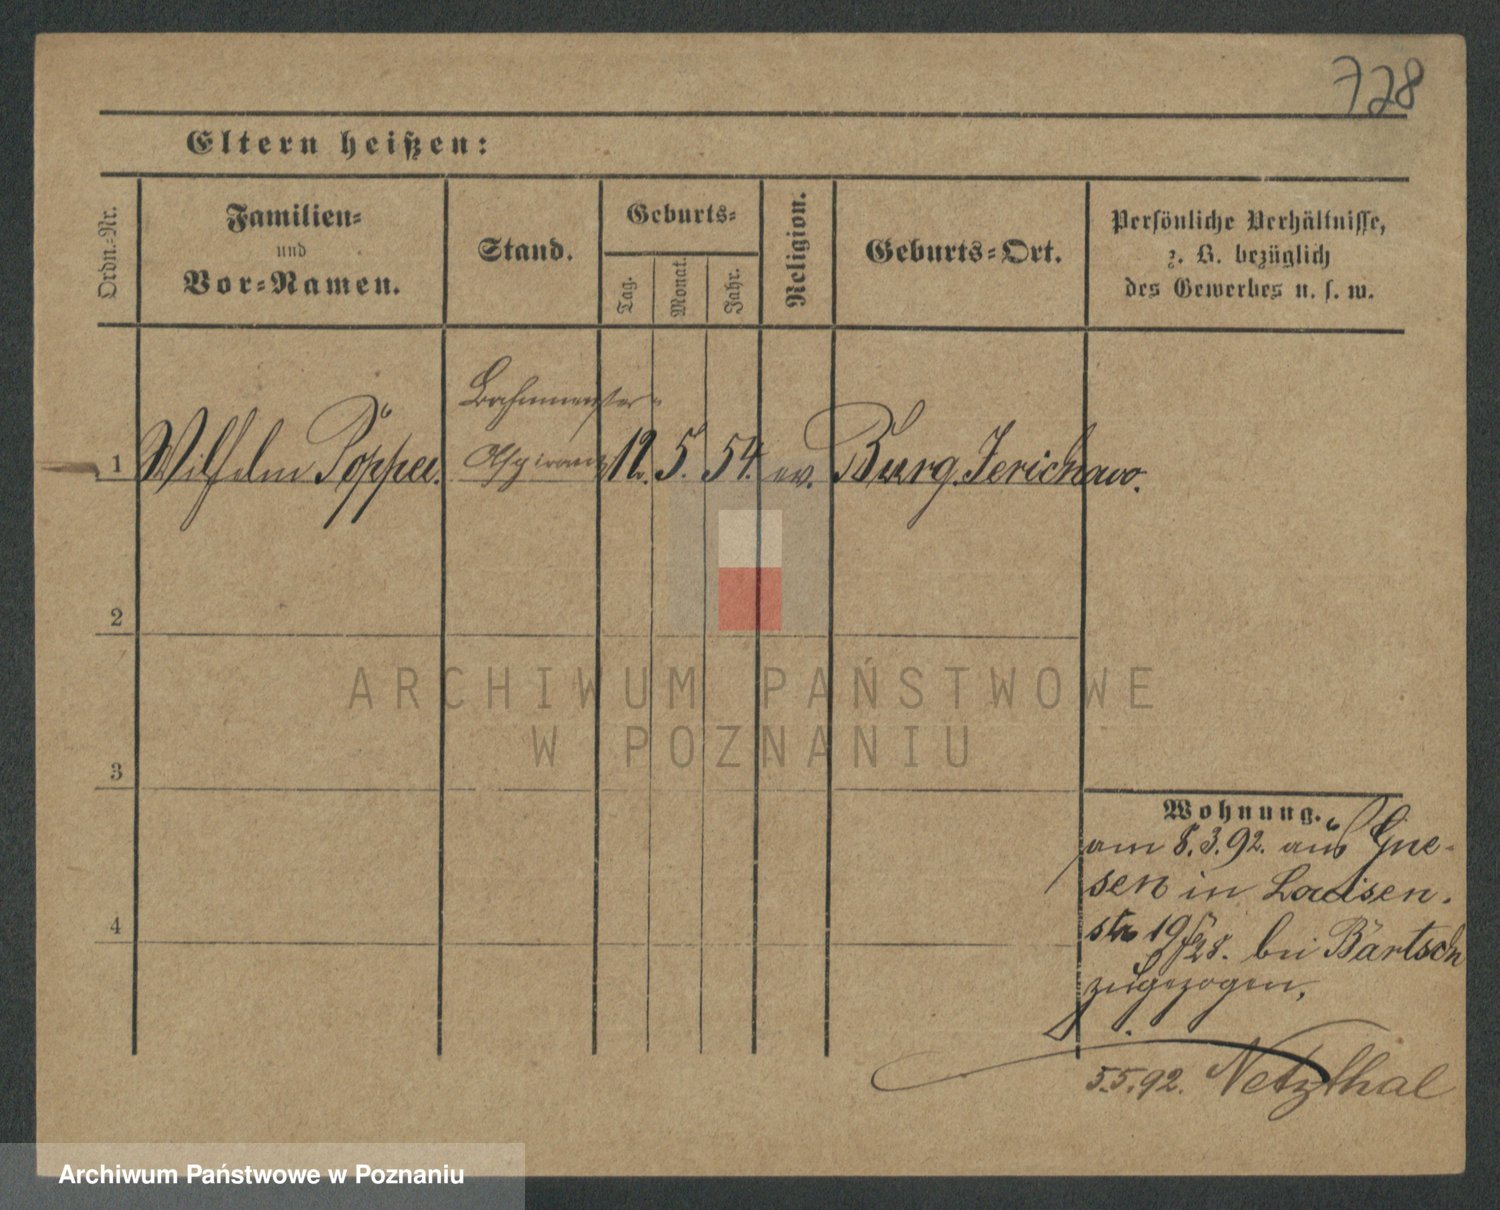 728
Eltern heißen:
Ordn.-Nr.
Familien-
und
Vor-Namen.
Stand.
Geburts-
Tag.
Monat.
Jahr.
Religion.
Geburts-Ort.
Persönliche Verhältnisse,
z. B. bezüglich
des Gewerbes u. s. w.
Bahnmeister-
1 Wilhelm Pöppel. Aspirant 12. 5. 54. ev. Burg. Jerichow.
2
3
4
Wohnung.
am 8.3.92. aus Gne-
sen in Louisen.
str 19 bei Bartsch
zugezogen,
5.5.92. Netzthal
ARCHIWUM PAŃSTWOWE
W POZNANIU
Archiwum Państwowe w Poznaniu